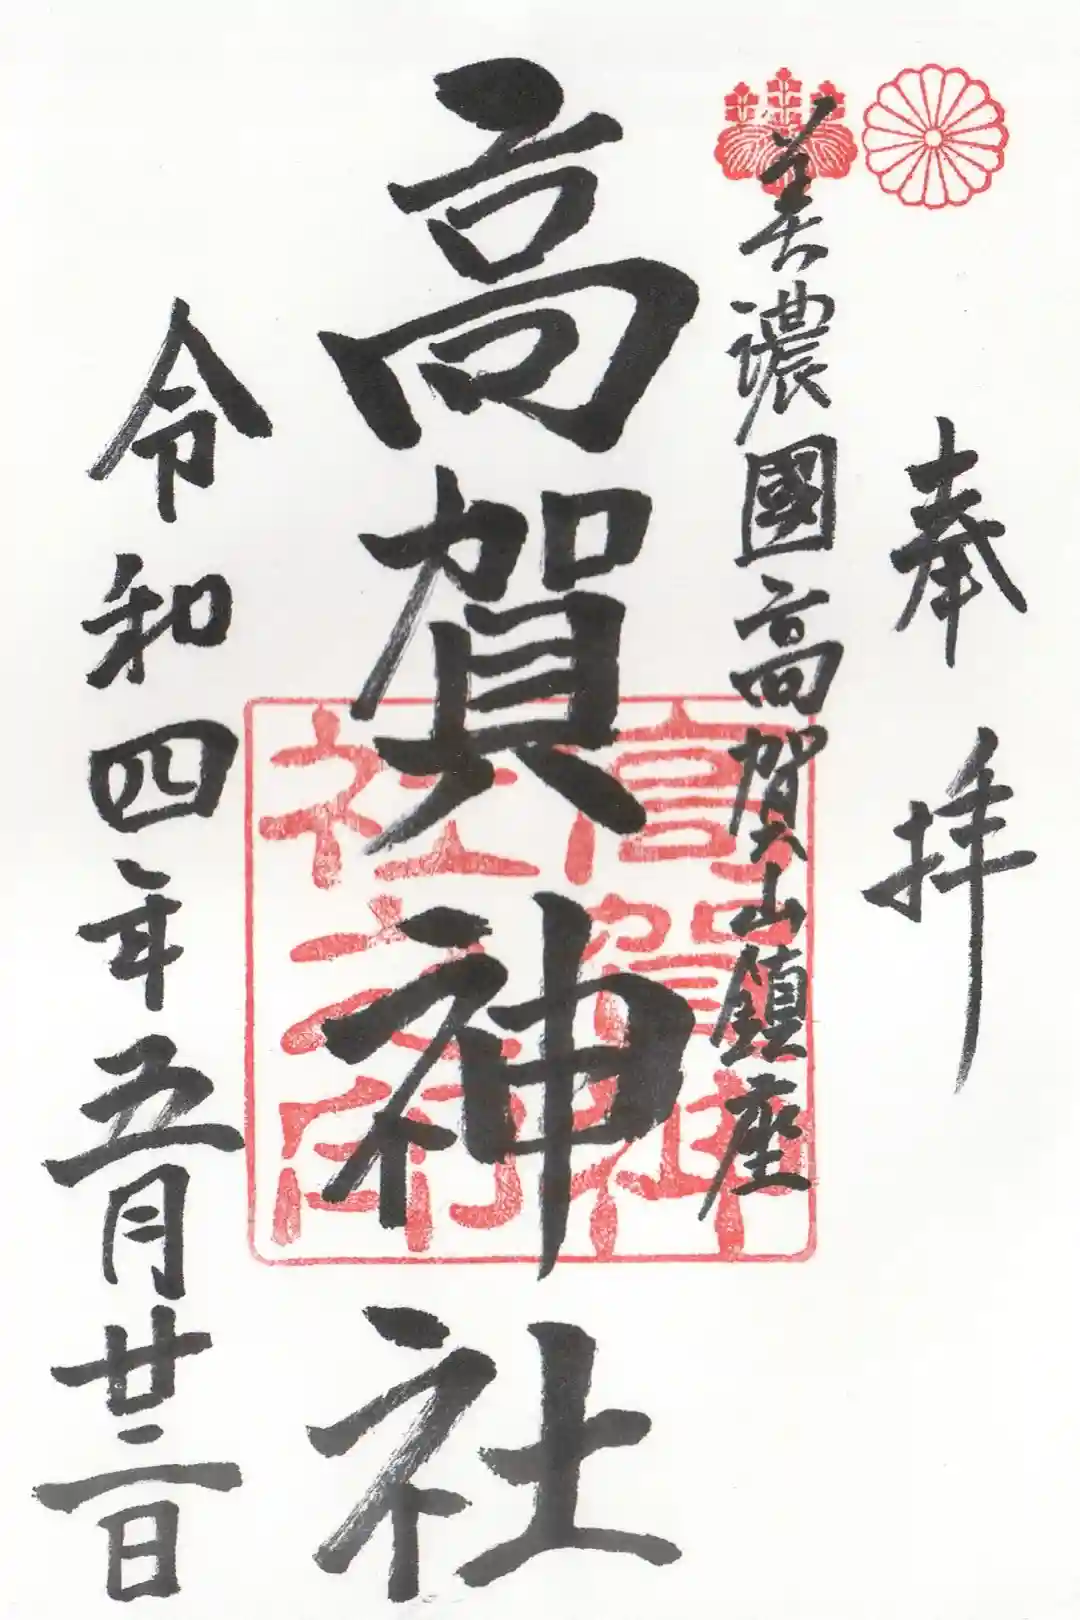 奉拝
美濃國高賀山鎮座
高賀神社
高賀神
社之印
令和四年五月廿二日